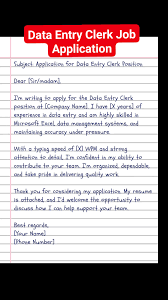 Data Entry Clerk Job
Application
Subject: Application for Data Entry Clerk Position
Dear [Sir/madam],
I'm writing to apply for the Data Entry Clerk
position at [Company Name]. I have [X] years of
experience in data entry and am highly skilled in
Microsoft Excel, data management systems, and
maintaining accuracy under pressure.
With a typing speed of [X] WPM and strong
attention to detail, I'm confident in my ability to
contribute to your team. I'm organized, dependable,
and take pride in delivering quality work.
Thank you for considering my application. My resume
is attached, and I'd welcome the opportunity to
discuss how I can help support your team.
Best regards,
[Your Name]
[Phone Number]